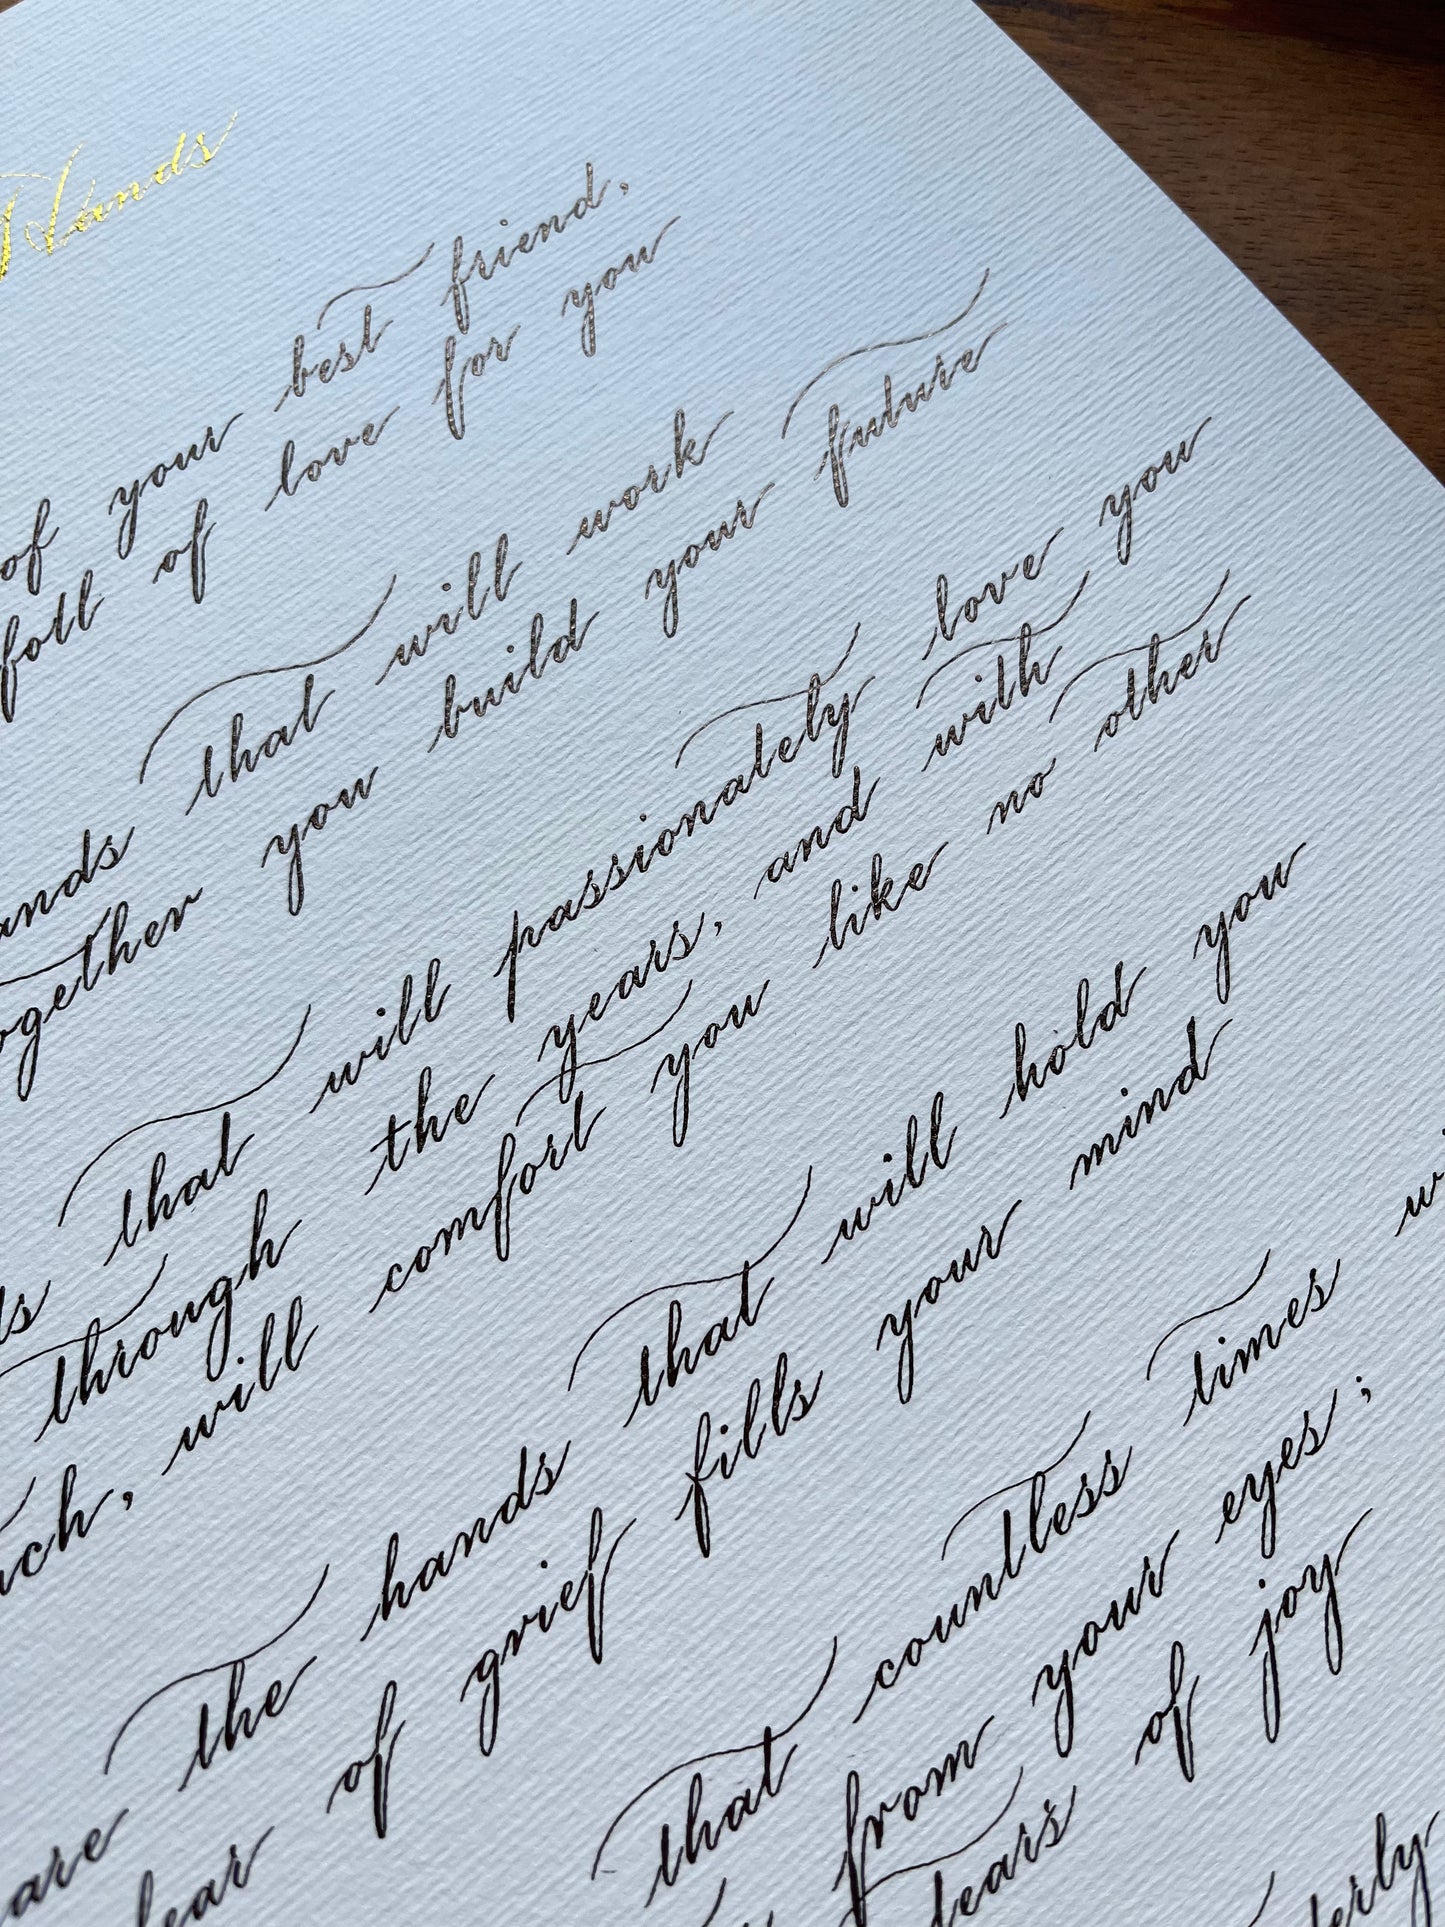 Hands
of your best friend,
full of love for you
hands that will work
together you build your future
that will passionately love you
through the years, and with
will comfort you like no other
are the hands that will hold you
of grief fills your mind
that countless times
from your eyes;
tears of joy